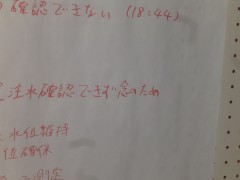 確認できない (18:44)
注水確認できず念のため
水位維持
位確保
測定